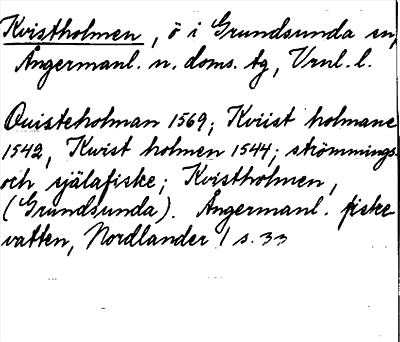 Kvistholmen, ö i Grundsunda sn,
Ångermanl. n. doms. tg, Vrnl. l.
Quisteholman 1569; Kviist holmane
1542, Kwist holmen 1544; strömmings-
och själafiske; Kvistholmen,
(Grundsunda). Ångermanl. fiske
vatten, Nordlander 1 s. 33